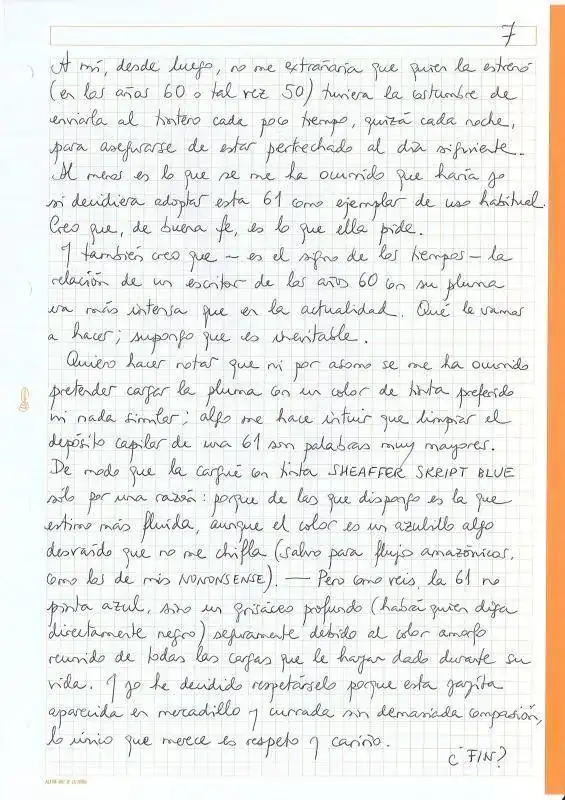 7
A mí, desde luego, no me extrañaría que quien la estrenó
(en los años 60 o tal vez 50) tuviera la costumbre de
enviarla al tintero cada poco tiempo, quizá cada noche,
para asegurarse de estar pertrechado al día siguiente..
Al menos es lo que se me ha ocurrido que haría yo
si decidiera adoptar esta 61 como ejemplar de uso habitual.
Creo que, de buena fe, es lo que ella pide.
Y también creo que - es el signo de los tiempos - la
relación de un escritor de los años 60 con su pluma
era más intensa que en la actualidad. Qué le vamos
a hacer; supongo que es inevitable.
Quiero hacer notar que ni por asomo se me ha ocurrido
pretender cargar la pluma con un color de tinta preferido
ni nada similar; algo me hace intuir que limpiar el
depósito capilar de una 61 son palabras muy mayores.
De modo que la cargué con tinta SHEAFFER SKRIPT BLUE
sólo por una razón: porque de las que dispongo es la que
estimo más fluida, aunque el color es un azulillo algo
desvaído que no me chifla (salvo para flujos amazónicos,
como los de mis NONONSENSE). — Pero como veis, la 61 no
pinta azul, sino un grisáceo profundo (habrá quien diga
directamente negro) seguramente debido al color amorfo
reunido de todas las cargas que le hayan dado durante su
vida. Y yo he decidido respetárselo porque esta
aparecida en mercadillo y currada sin demasiada compasión,
lo único que merece es respeto y cariño.
¿FIN?